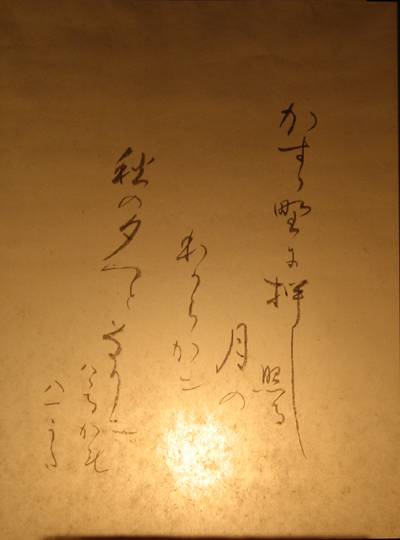 かすか野に押し照る
月の
ほからかに
秋の夕へとなりに
けるかも
八一うた